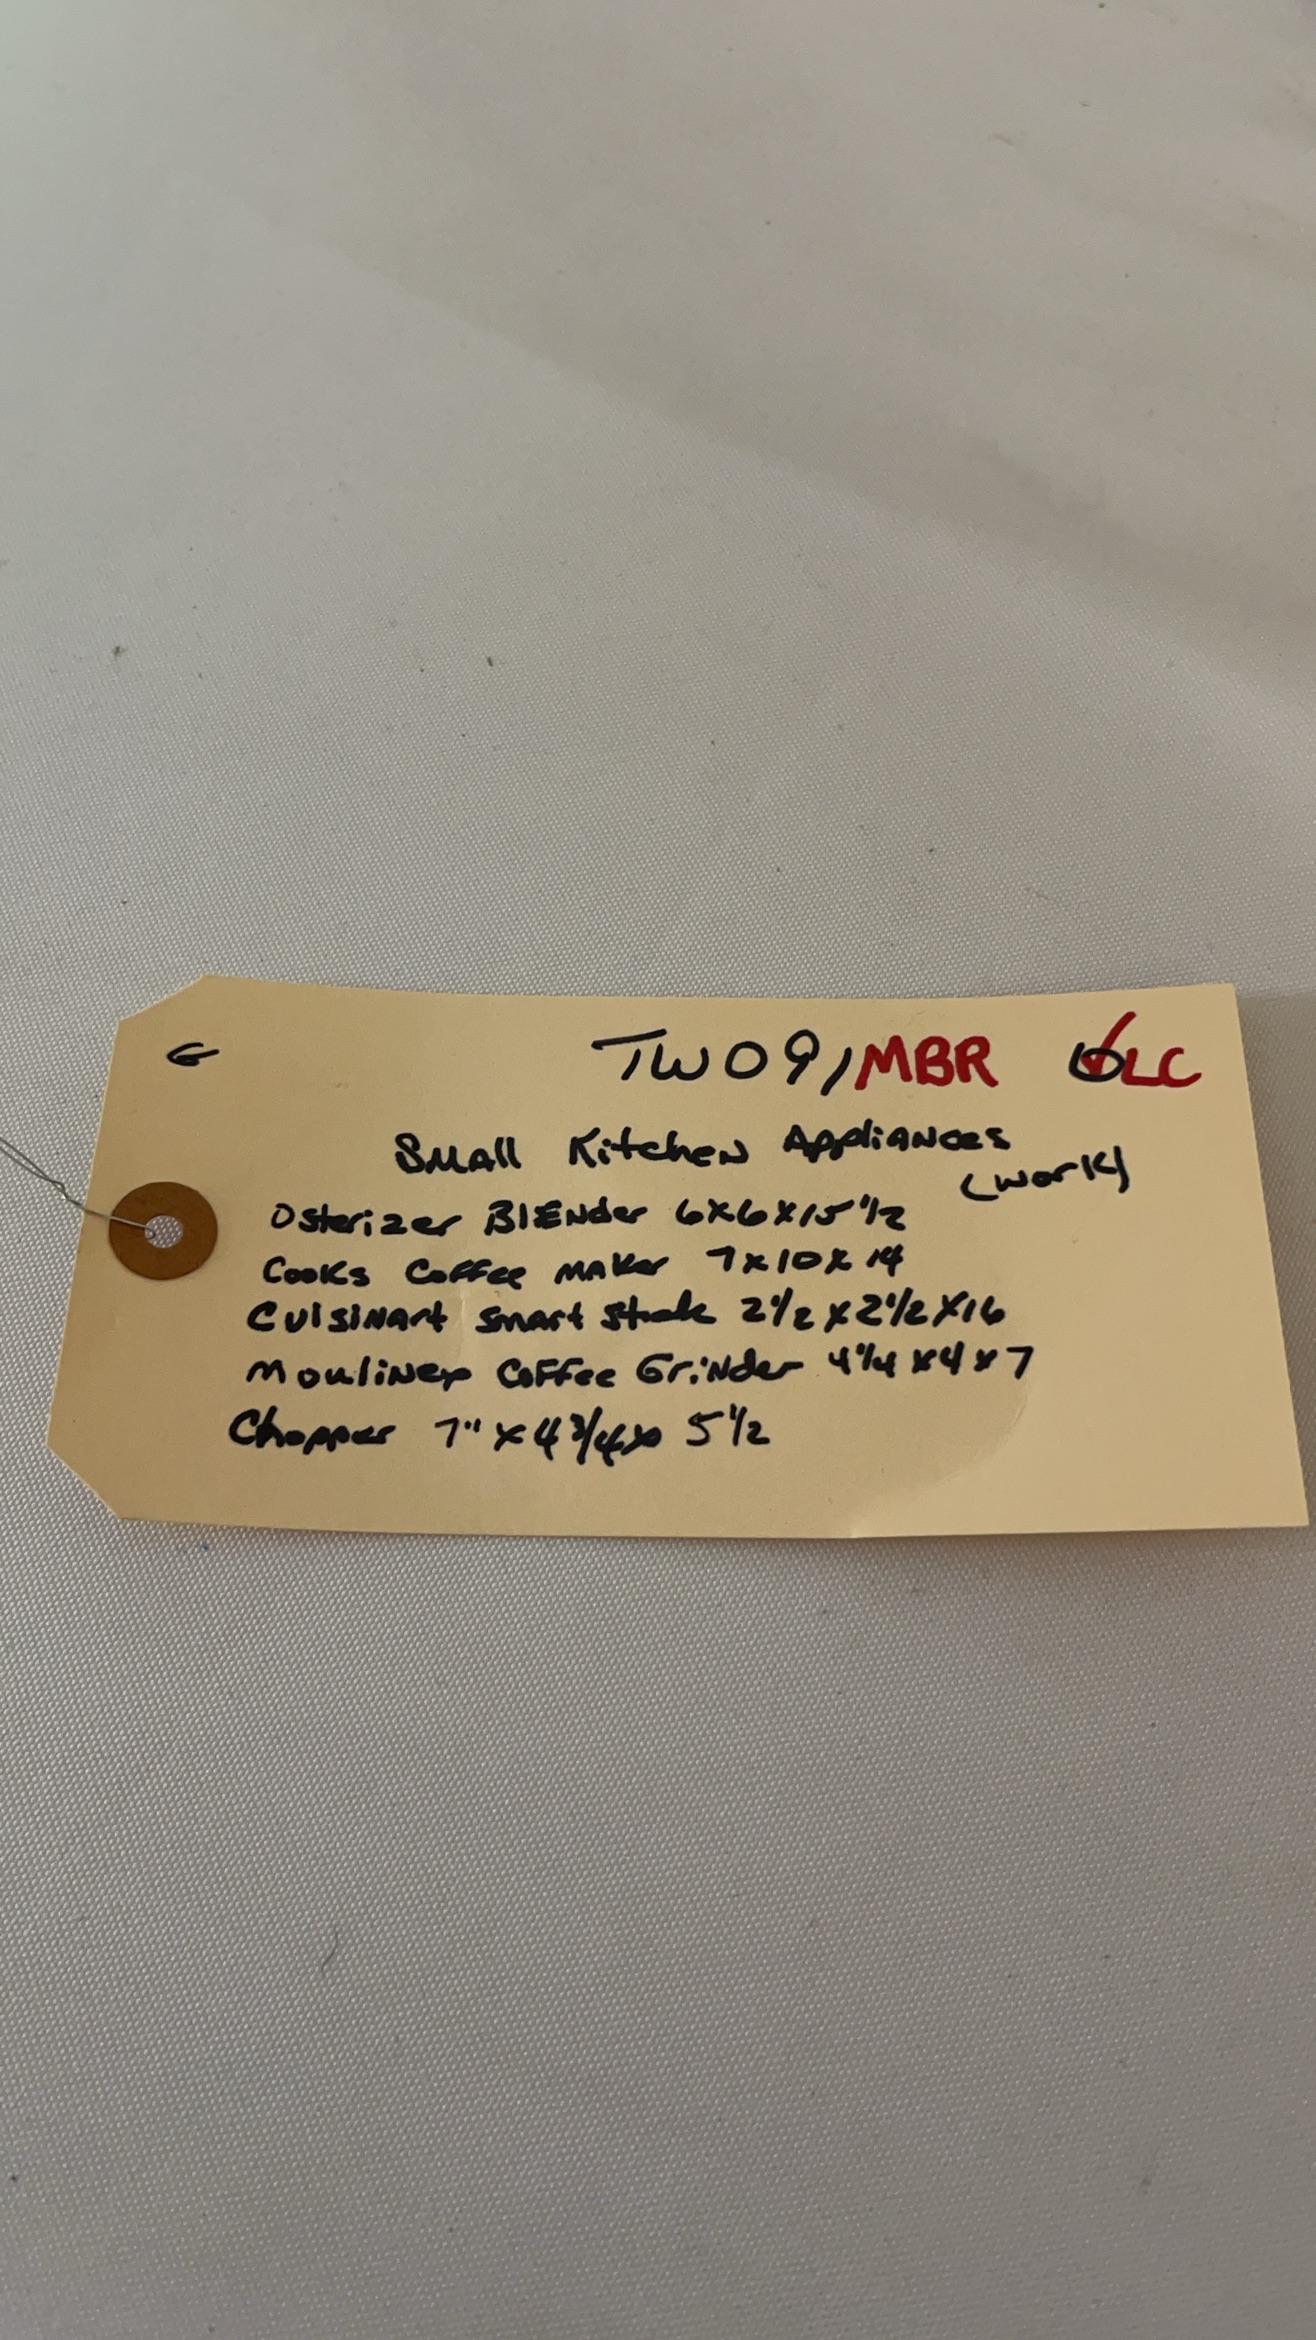 G TW09/MBR ✓LC
Small Kitchen Appliances
(work)
Osterizer Blender 6x6x15 1/2
Cooks Coffee Maker 7x10x14
Cuisinart Smart Stick 2 1/2 x 2 1/2 x 16
Moulinex Coffee Grinder 4 1/4 x 4 x 7
Chopper 7" x 4 3/4 x 5 1/2